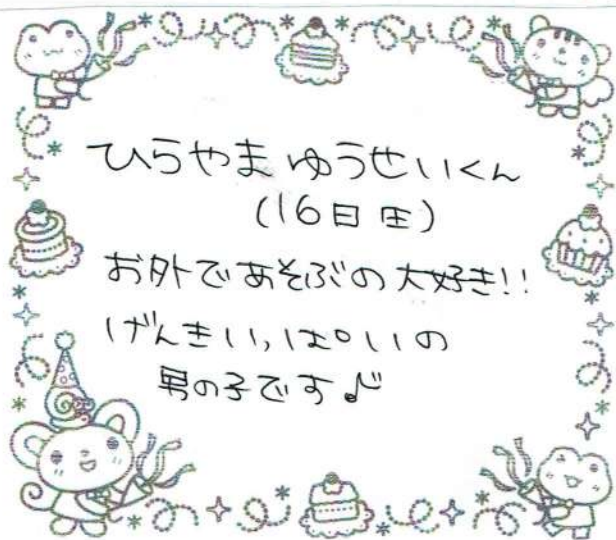 ひらやま ゆうせいくん
(16日生)
お外であそぶの大好き!!
げんきいっぱいの
男の子です♪